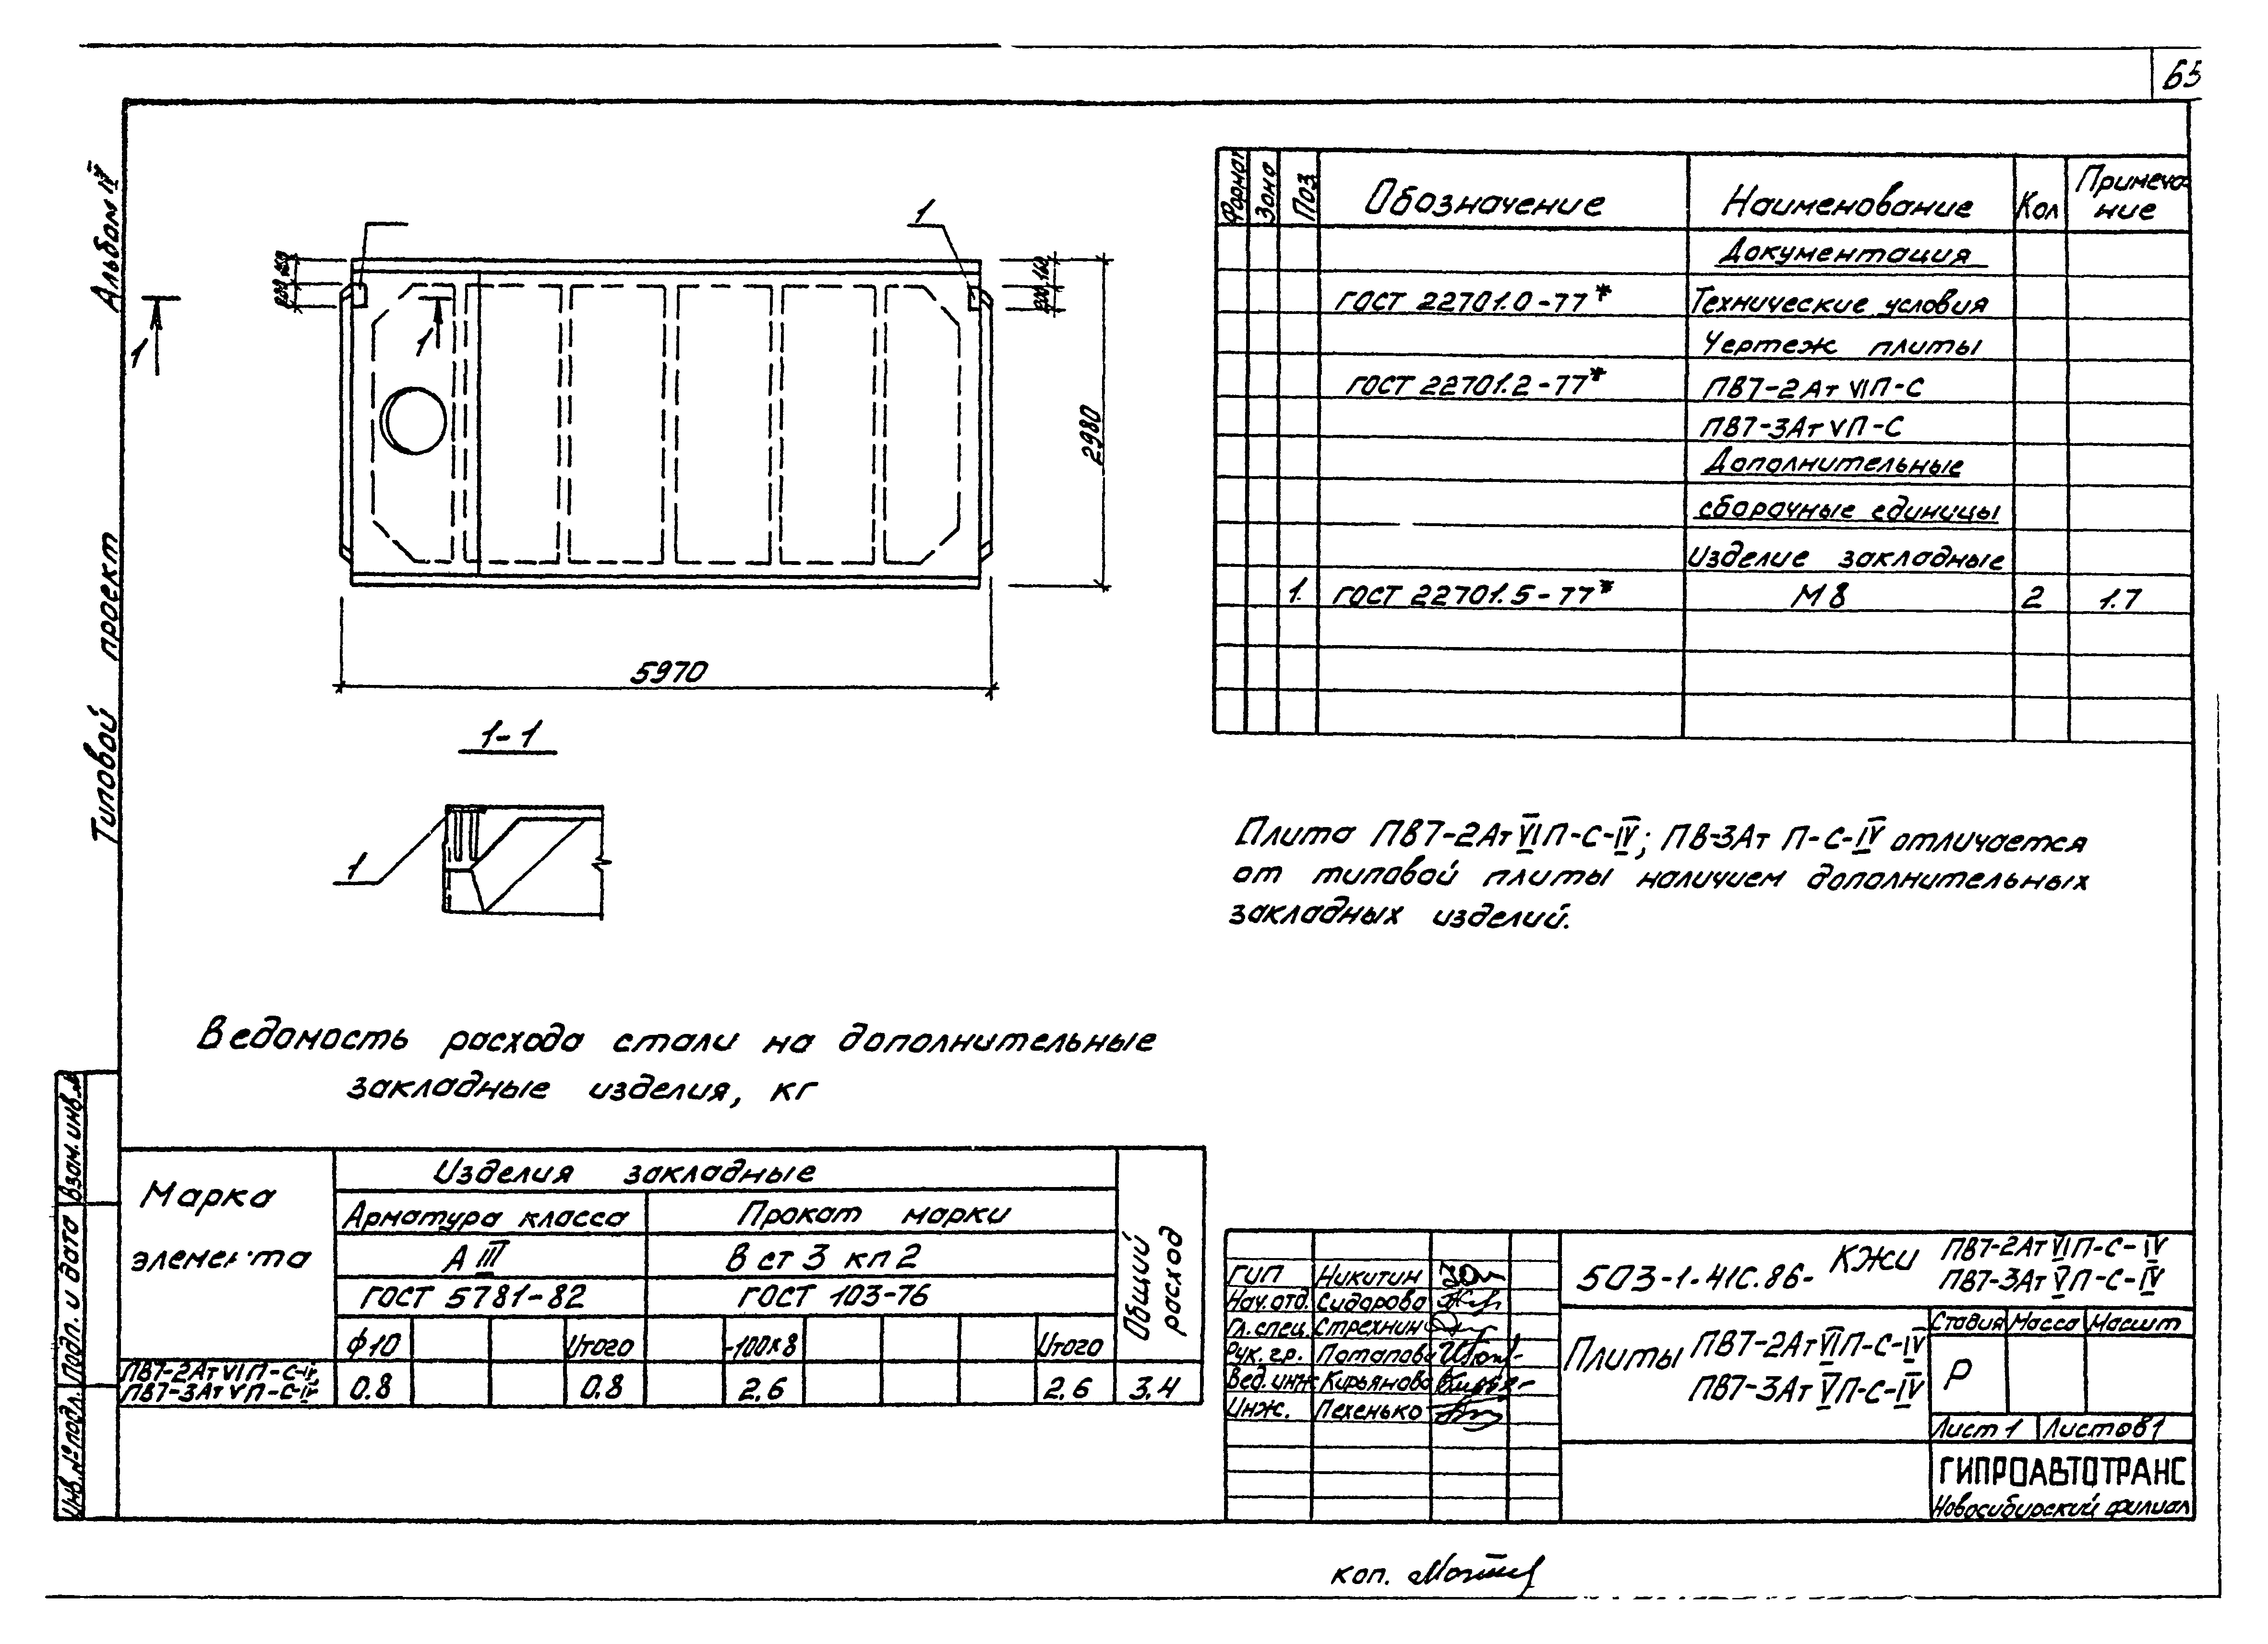 65
Альбом IV
Типовой проект
1
1
1
200
200
160
2980
5970
1-1
1
Формат Зона Поз. Обозначение Наименование Кол Примеча-
ние
Документация
ГОСТ 22701.0-77* Технические условия
Чертеж плиты
ГОСТ 22701.2-77* ПВ7-2Ат VIП-С
ПВ7-3Ат VП-С
Дополнительные
сборочные единицы
Изделие закладные
1. ГОСТ 22701.5-77* М8 2 1.7
Плита ПВ7-2Ат VIП-С-IV; ПВ-3Ат П-С-IV отличается
от типовой плиты наличием дополнительных
закладных изделий.
Ведомость расхода стали на дополнительные
закладные изделия, кг
Марка
элемента
Изделия закладные
Общий
расход
Арматура класса Прокат марки
А III В ст 3 кп 2
ГОСТ 5781-82 ГОСТ 103-76
ф10 Итого -100х8 Итого
ПВ7-2Ат VIП-С-IV,
ПВ7-3Ат VП-С-IV 0.8 0.8 2.6 2.6 3.4
Взам. инв.№
Подп. и дата
Инв.№ подл.
ГИП Никитин
Нач.отд. Сидорова
Гл. спец. Стрехнин
Рук. гр. Потапова
Вед. инж Кирьянова
Инж. Пехенько
503-1-41С.86- КЖИ ПВ7-2Ат VIП-С-IV
ПВ7-3Ат VП-С-IV
Плиты ПВ7-2Ат VIП-С-IV
ПВ7-3Ат VП-С-IV
Стадия Масса Масшт
Р
Лист 1 Листов 1
ГИПРОАВТОТРАНС
Новосибирский филиал
коп.